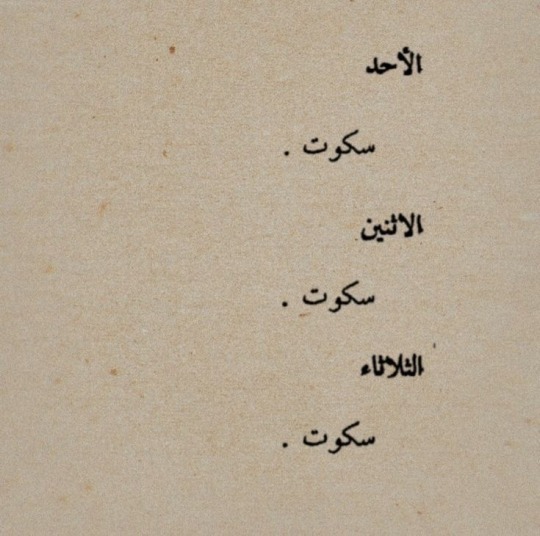 الأحد
سكوت .
الاثنين
سكوت .
الثلاثاء
سكوت .